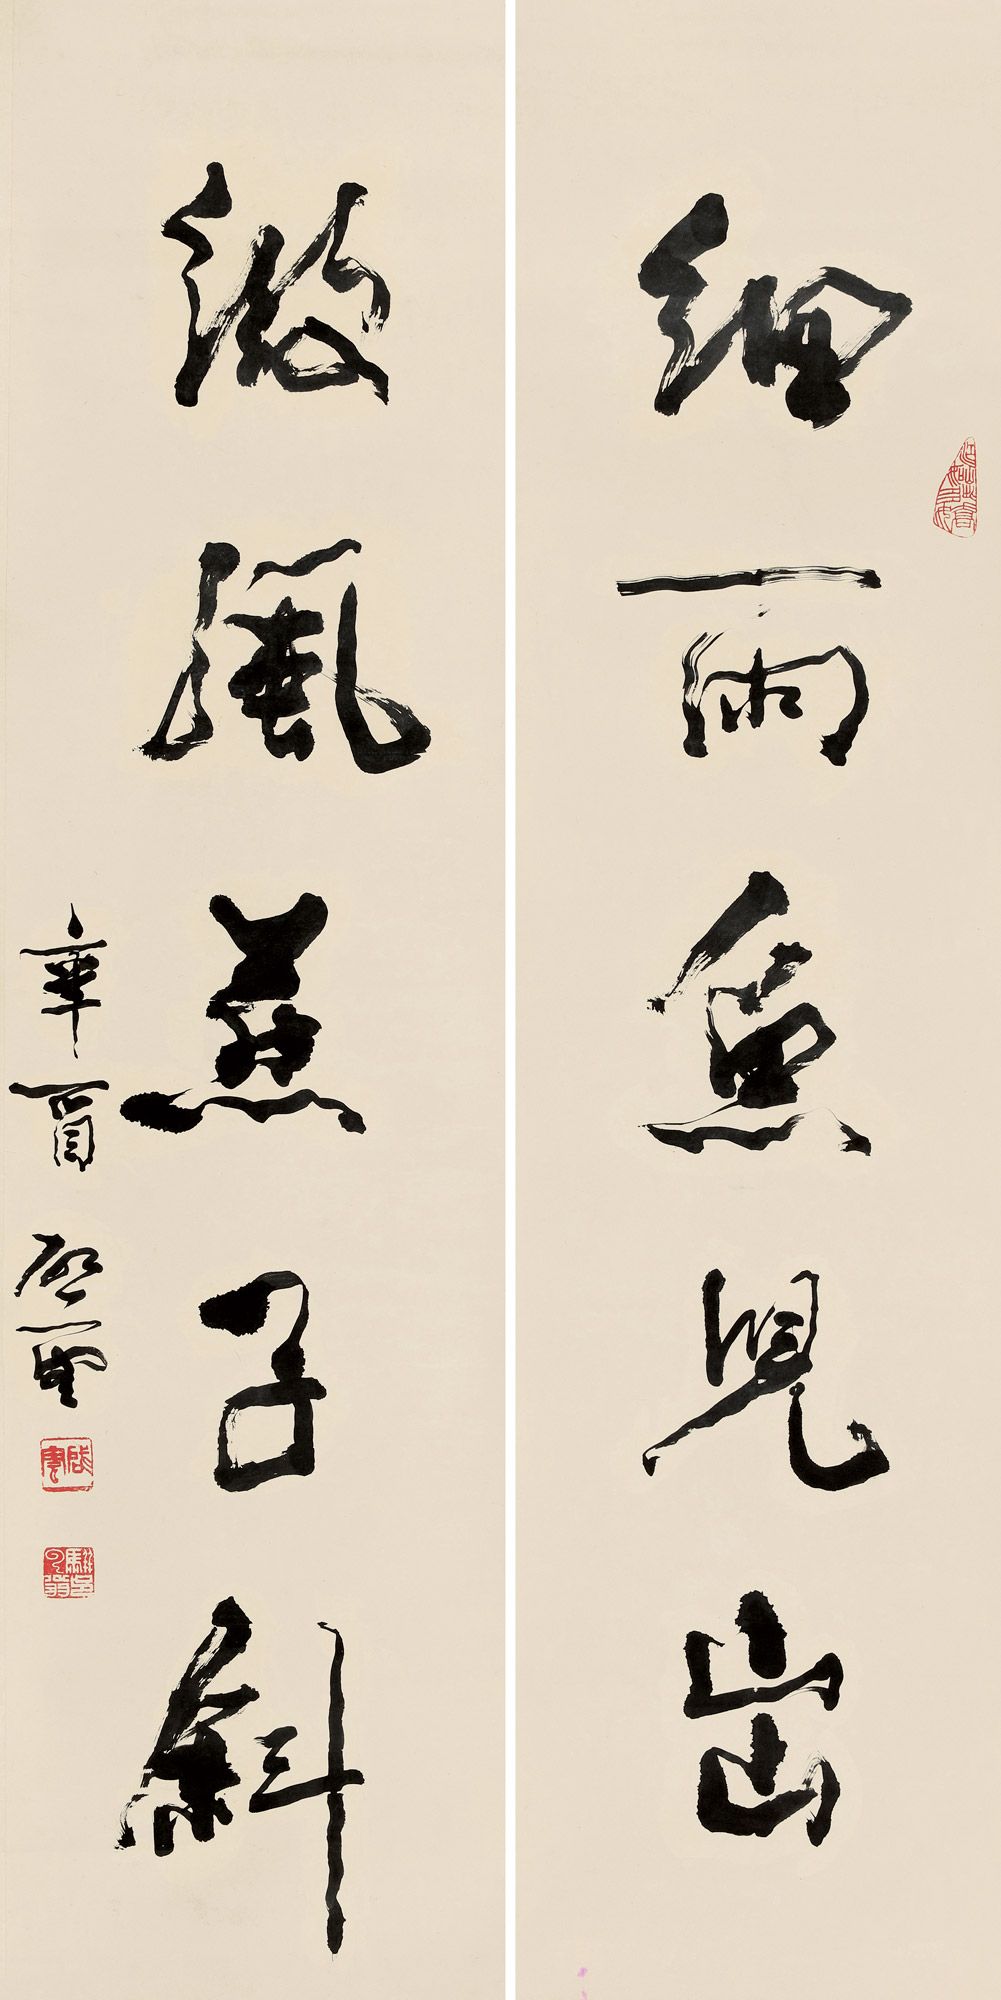 細雨魚兒出
微風燕子斜
辛酉